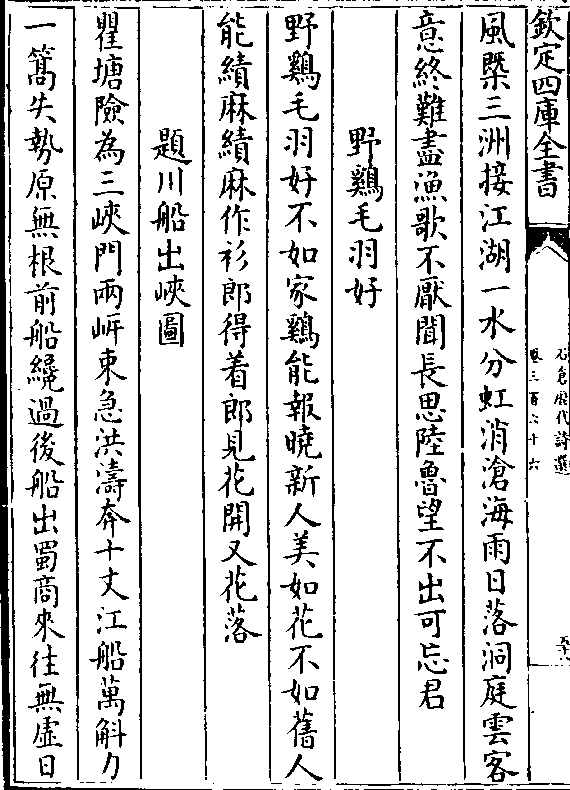 欽定四庫全書
石倉歷代詩選
卷三百六十六
風槩三洲接江湖一水分虹消滄海雨日落洞庭雲客
意終難盡漁歌不厭聞長思陸魯望不出可忘君
野鷄毛羽好
野鷄毛羽好不如家鷄能報曉新人美如花不如舊人
能績麻績麻作衫郎得着郎見花開又花落
題川船出峽圖
瞿塘險為三峽門兩岍束急洪濤奔十丈江船萬斛力
一篙失勢原無根前船纔過後船出蜀商來往無虛日